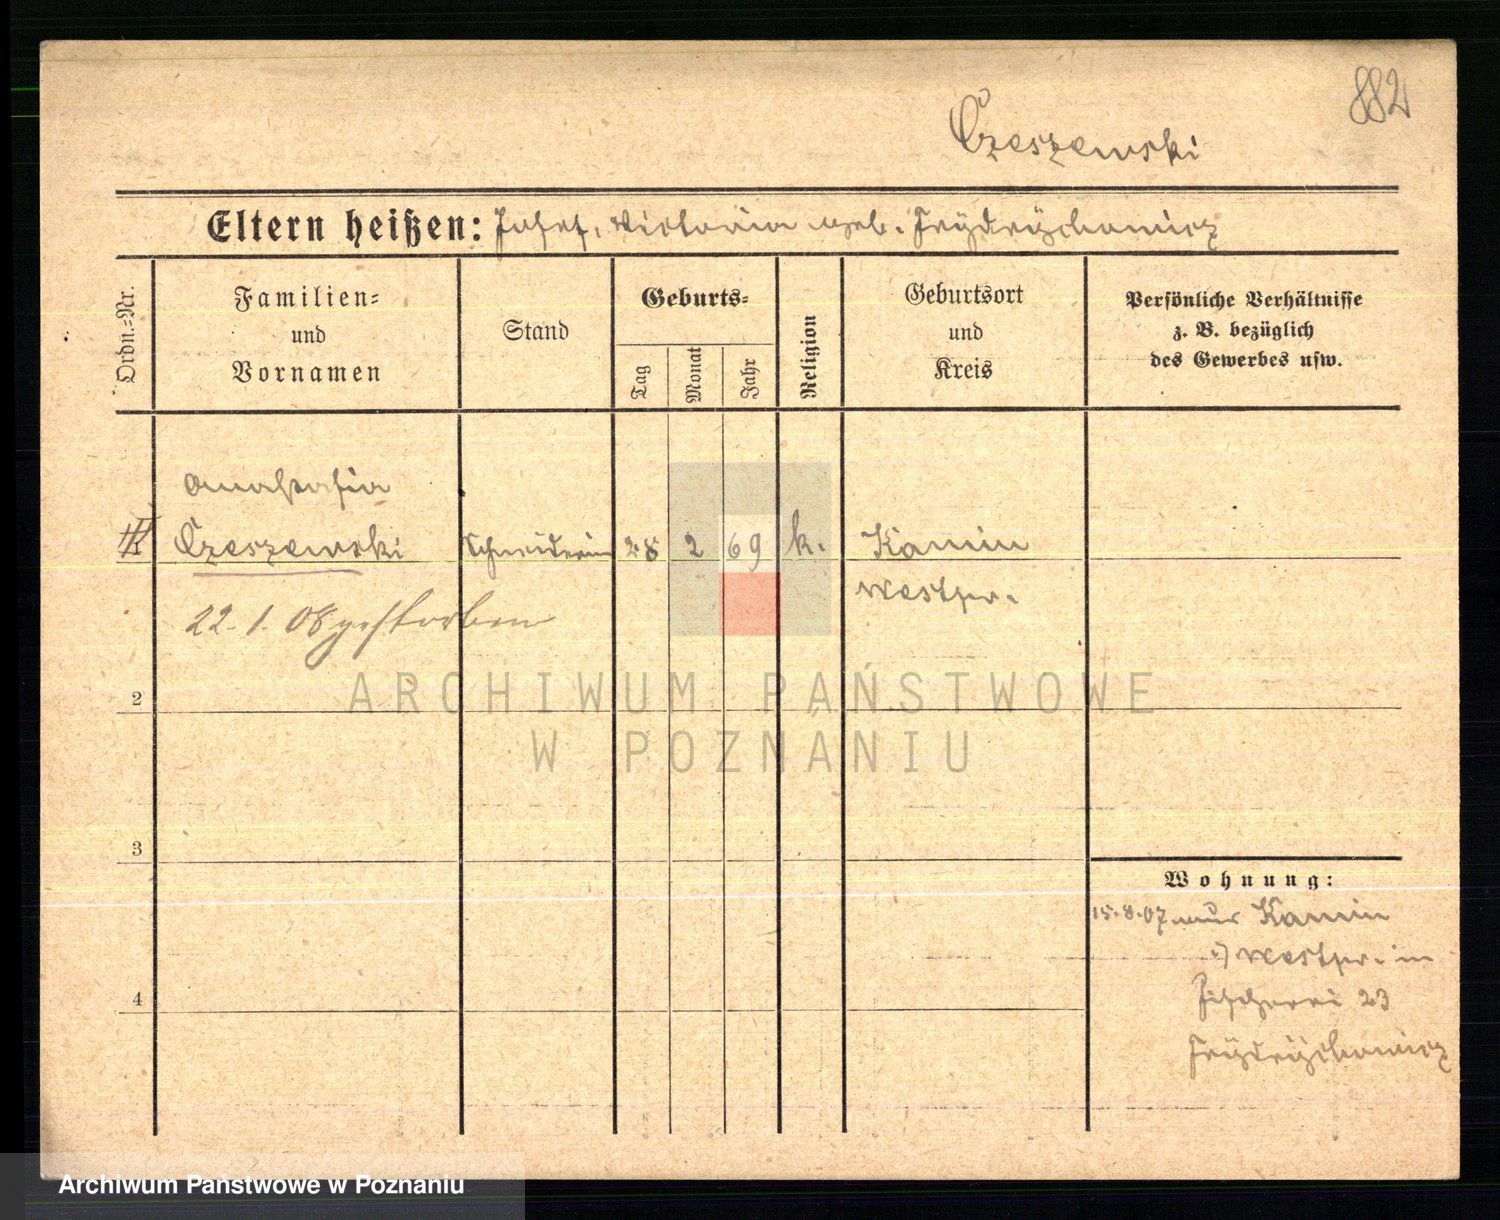 882
Czeszewski
Eltern heißen: Josef, Victoria geb. Frydrychowicz
Ordn.-Nr.
Familien-
und
Vornamen
Stand
Geburts-
Tag
Monat
Jahr
Religion
Geburtsort
und
Kreis
Persönliche Verhältnisse
z. B. bezüglich
des Gewerbes usw.
Anastasia
Czeszewski Schneiderin 28 2 69 k. Kamin
Westpr.
22. 1. 08 gestorben
2
ARCHIWUM PAŃSTWOWE
W POZNANIU
3
Wohnung:
15.8.07 aus Kamin
Westpr. in
Fischerei 23
Frydrychowicz
4
Archiwum Państwowe w Poznaniu